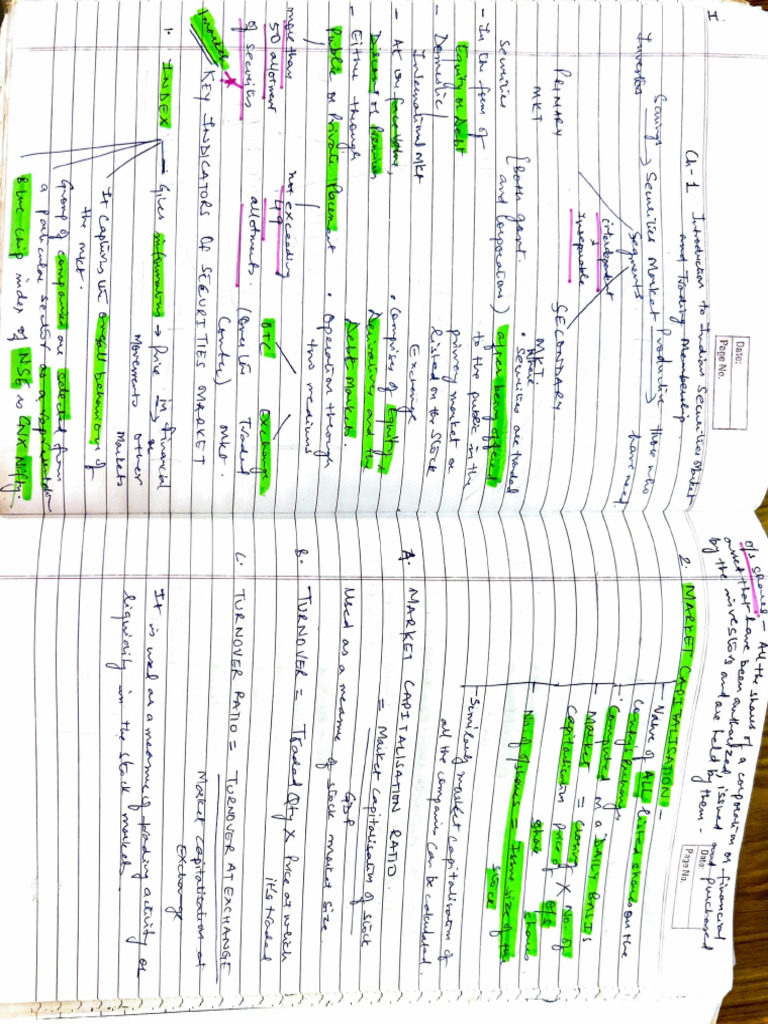 I
Date:
Page No.
Ch-1 Introduction to Indian Securities Market
and Trading Membership.
Investors Savings → Securities Market Productive → Those who
have need
Segments
interdependent
&
Inseparable
PRIMARY
MKT
SECONDARY
MKT
{Both govt.
and Corporation}
- In the form of
securities
Equity or Debt
- Domestic/
International Mkt
- At on face value,
Discount or Premium
- Either through
Public or Private Placement
more than
50 allotment
of securities
not exceeding
49
allotments.
• Securities are traded
after being offered
to the public in the
primary market or
listed on the Stock
Exchange
• Comprises of Equity &
Derivatives and the
Debt Markets.
• Operation through
two mediums
OTC
(Over the
Counter)
Exchange
Traded
Mkt.
KEY INDICATORS OF SECURITIES MARKET
1. INDEX
→ Gives information → Price in financial
Movements or other
Markets
It captures the overall behaviour of
the mkt.
Group of companies are selected from
a particular sector as a representation
Blue chip index of NSE is CNX Nifty.
O/s shares - All the shares of a corporation or financial
asset that have been authorized, issued and purchased
by the investors and are held by them.
Date:
Page No.
2. MARKET CAPITALISATION -
- Value of ALL listed shares on the
Country's exchange
- Computed on a DAILY BASIS
- Market Capitalisation = Closing Price of share X No. of O/s shares
- No. of shares = Issue size of the
stock
- Similarly market capitalisation of
all the companies can be calculated.
A. MARKET CAPITALISATION RATIO
= Market Capitalisation of stock
GDP
Used as a measure of stock market size.
B. TURNOVER = Traded Qty X Price at which
it's traded
C. TURNOVER RATIO = TURNOVER AT EXCHANGE
Market capitalisation at
Exchange
It is used as a measure of trading activity or
liquidity in the stock markets.